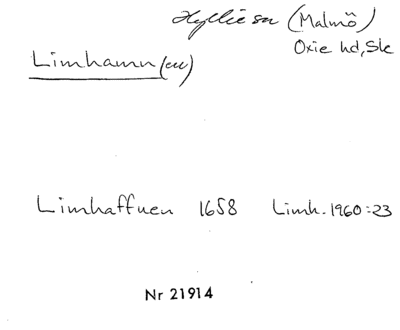 Hyllie sn (Malmö)
Oxie hd, Sk
Limhamn (en)
Limhaffnen 1658 Limh. 1960:23
Nr 21914